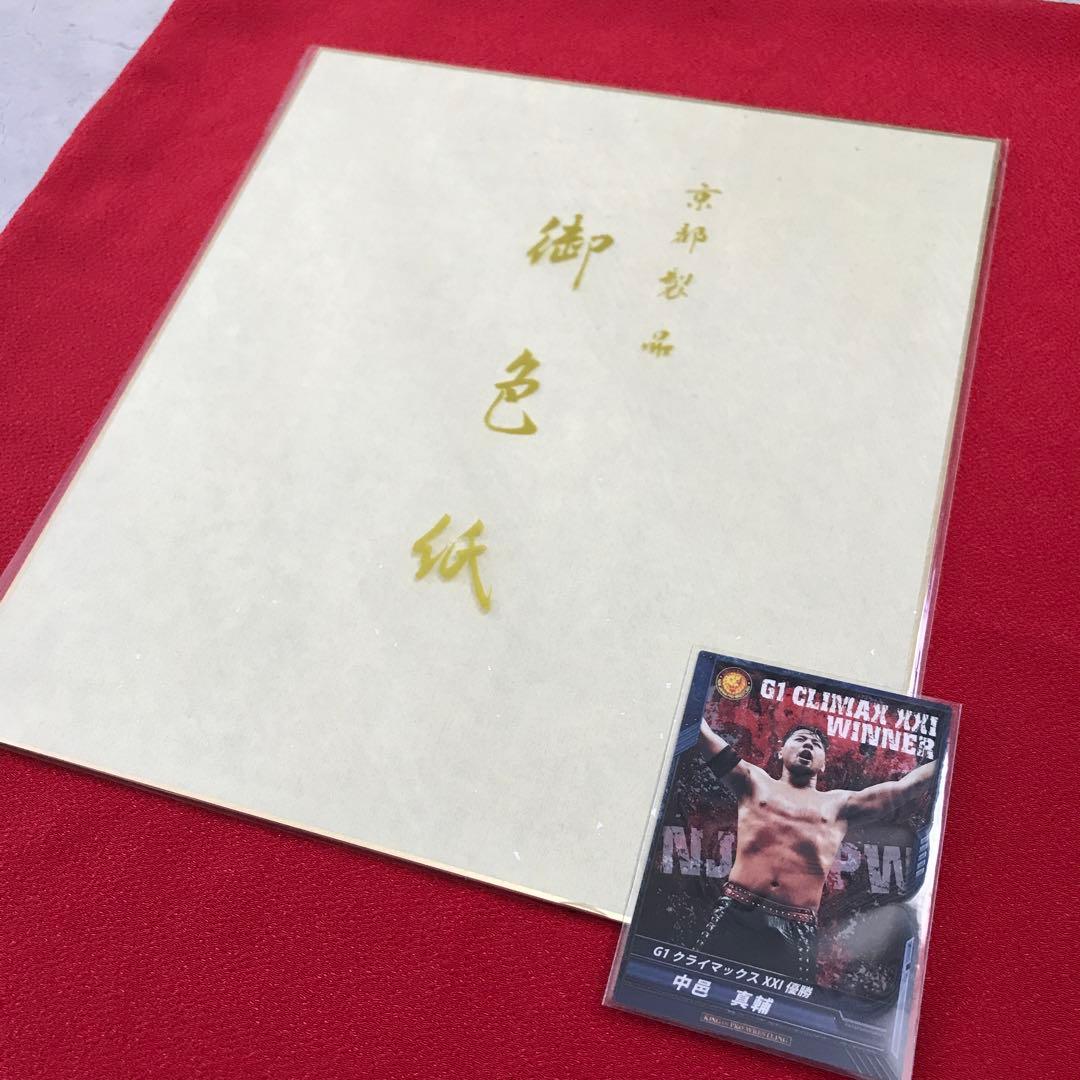 京都製品
御色紙
G1 CLIMAX XXI
WINNER
NJPW
G1 クライマックス XXI 優勝
中邑 真輔
KING OF PRO-WRESTLING